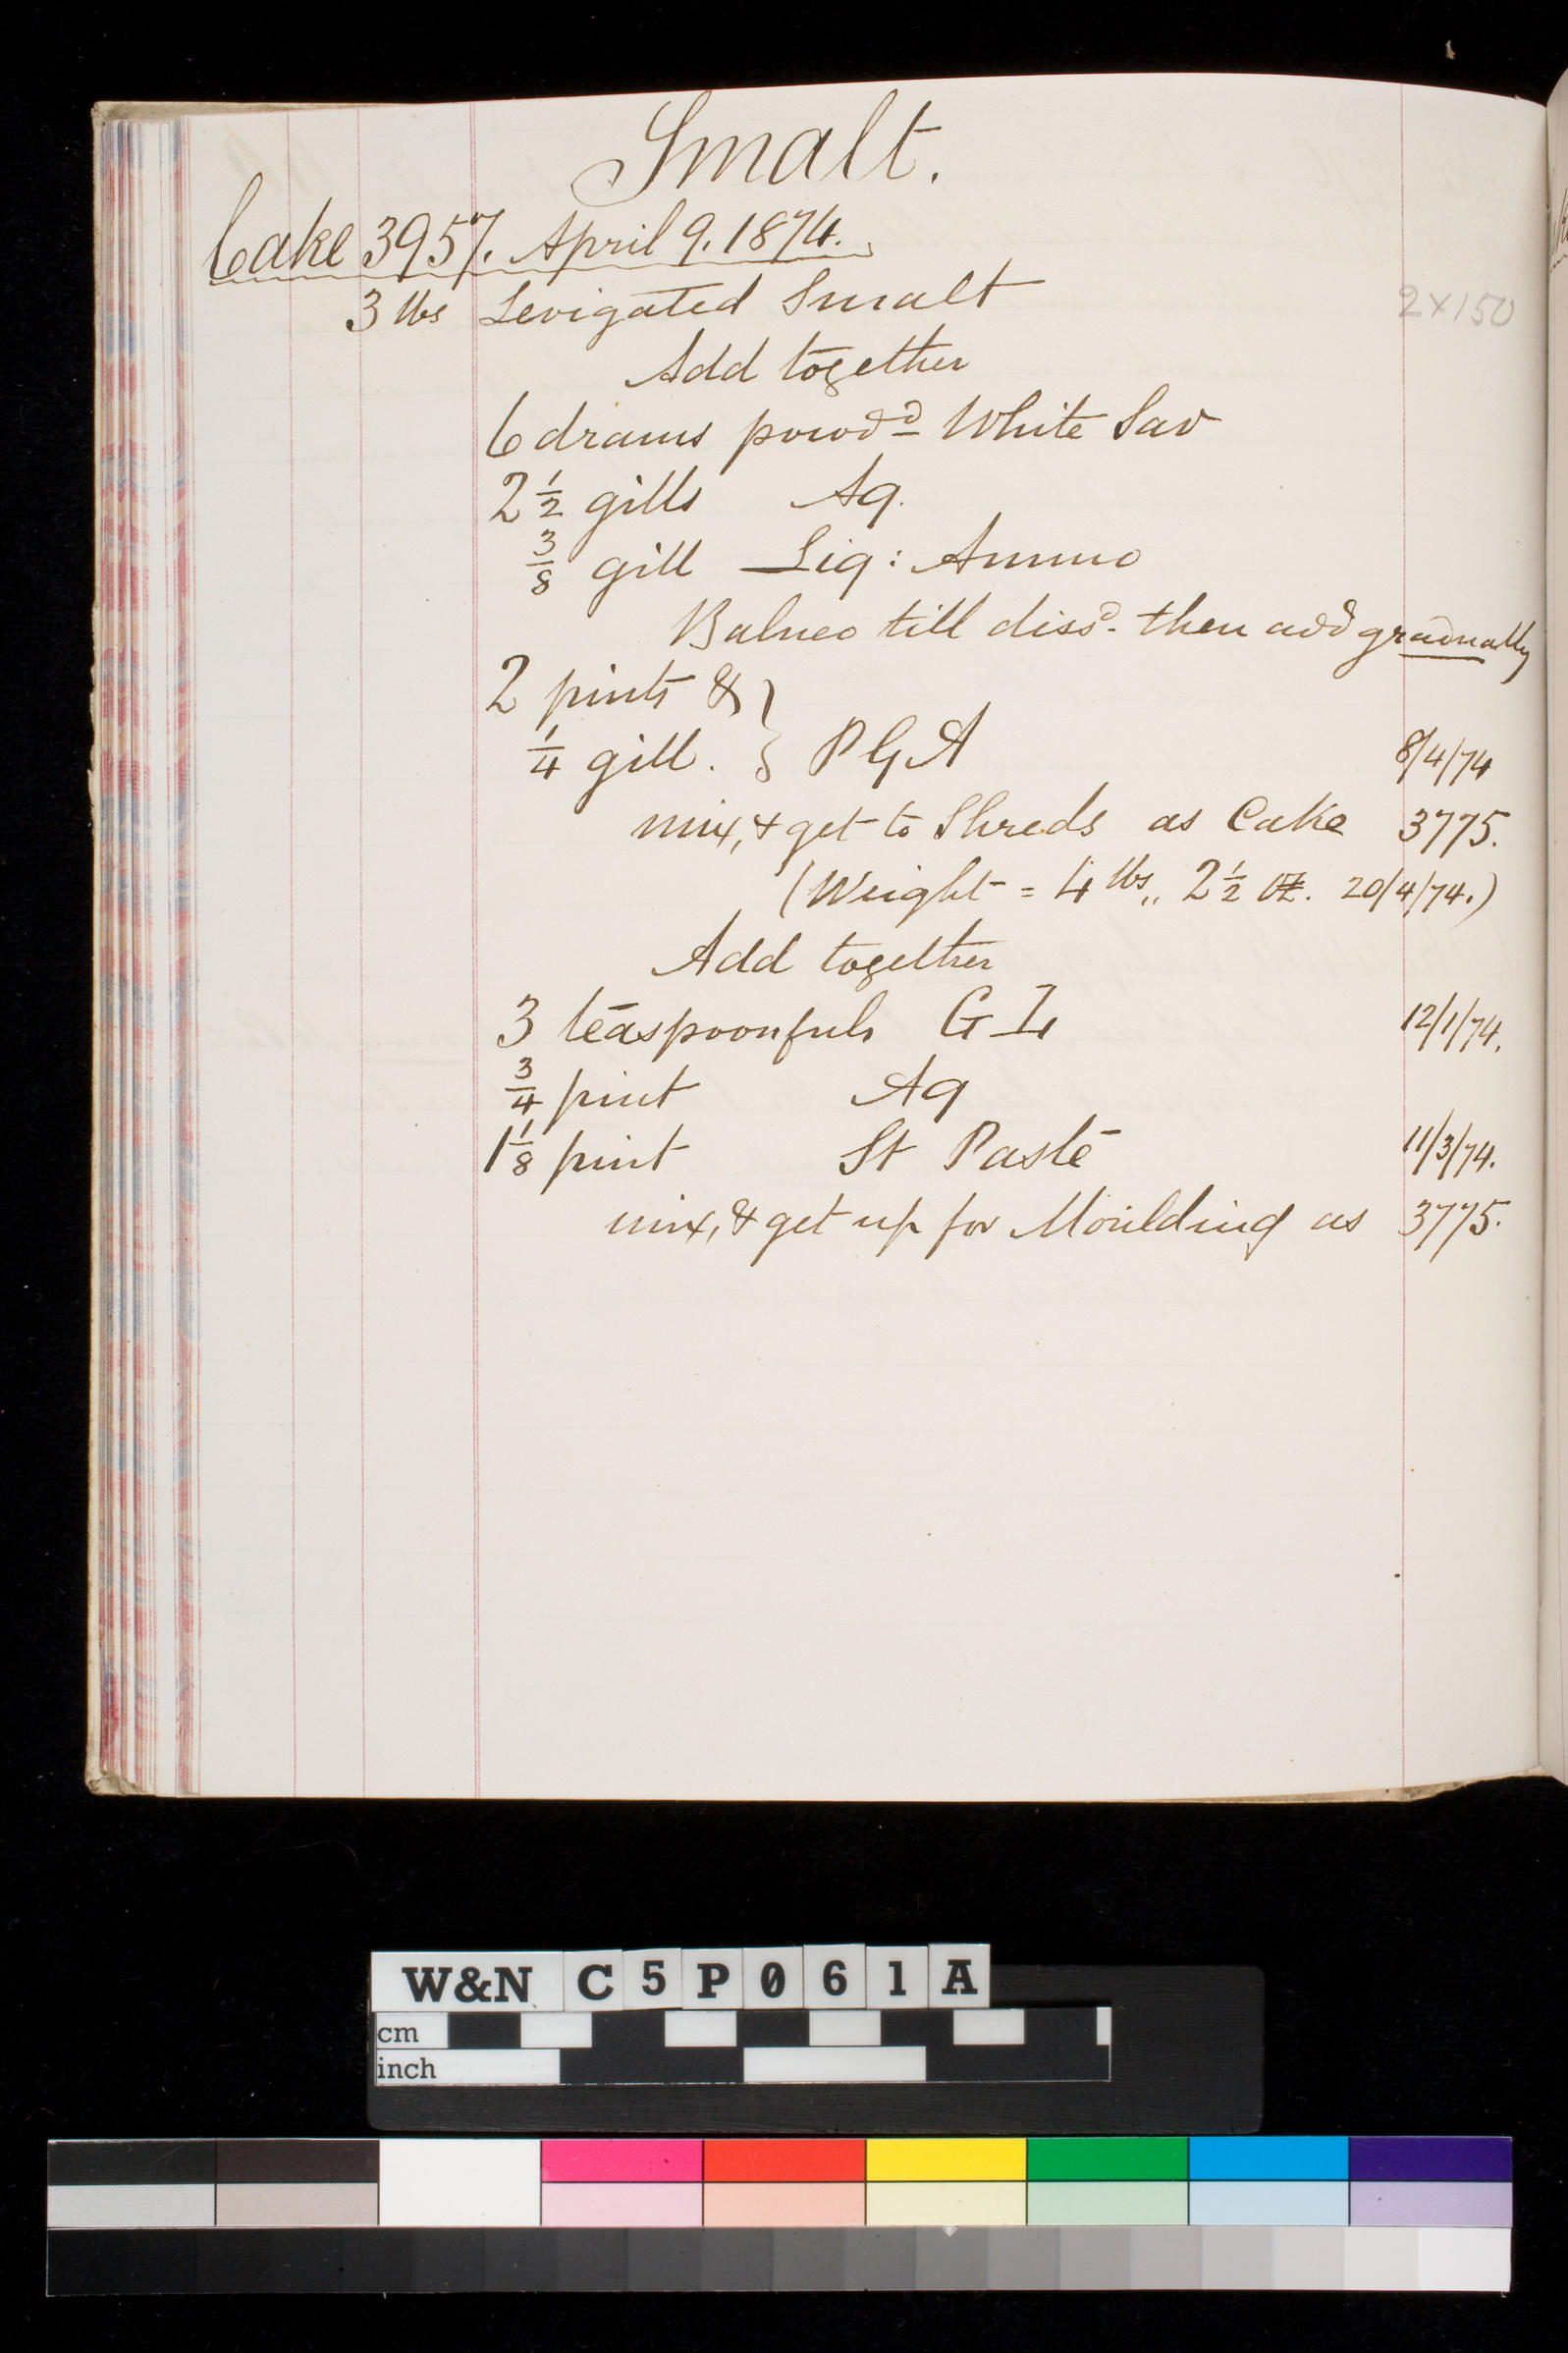 Smalt.
Cake 3957. April 9. 1874.
3 lbs Levigated Smalt 2x150
Add together
6 drams powdd White Sav
2 1/2 gills Aq.
3/8 gill Liq: Ammo
Balneo till dissd. then add gradually
2 pints & }
1/4 gill. } P G A 8/4/74
mix, & get to Shreds as Cake 3775.
(Weight = 4 lbs,, 2 1/2 oz. 20/4/74.)
Add together
3 teaspoonfuls G L 12/1/74.
3/4 pint Aq
1 1/8 pint St Paste 11/3/74.
mix, & get up for Moulding as 3775.
W&N C5P061A
cm
inch